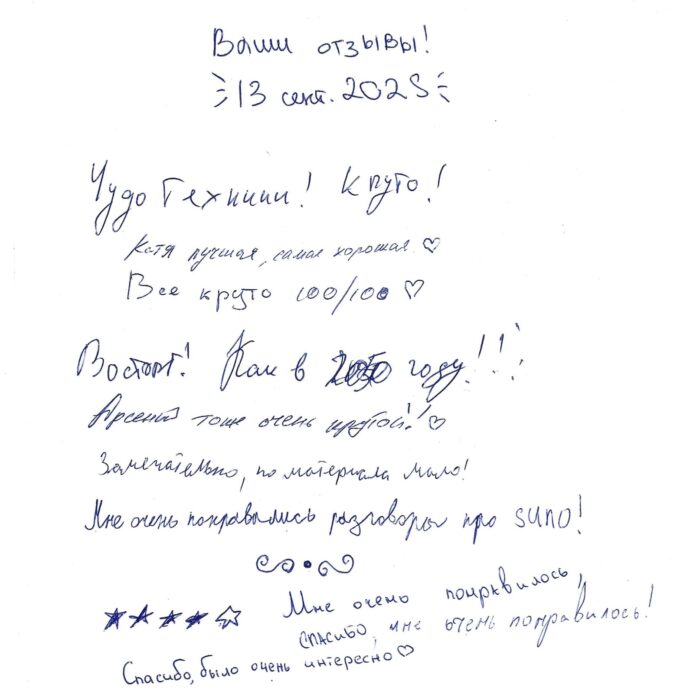 Ваши отзывы!
13 сент. 2025
Чудо Техники! Круто!
Катя лучшая, самая хорошая ♡
Все круто 100/100 ♡
Восторг! Как в 2050 году!!!
Арсений тоже очень крутой! ♡
Замечательно, но материала мало!
Мне очень понравились разговоры про SUNO!
★★★★☆ Мне очень понравилось,
спасибо, мне очень понравилось!
Спасибо, было очень интересно ♡